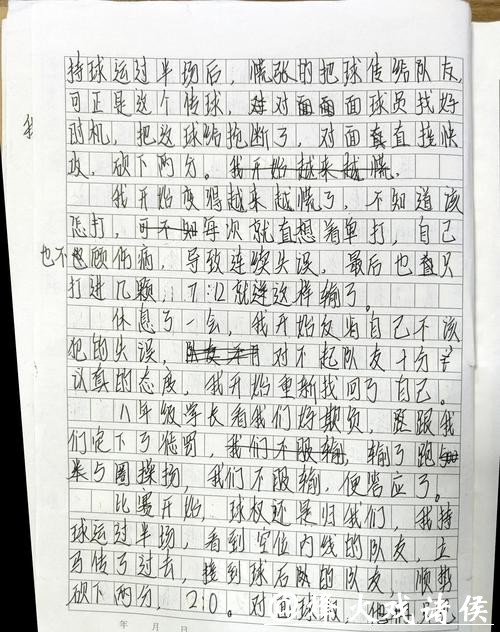 持球运过半场后，慌张的把球传给队友，
可正是这个传球，对面球员找好
我
时机，把这球给抢断了，对面直接快
攻，砍下两分。我开始越来越慌。
我开始变得越来越慌了，不知道该
怎打，每次就直想着单打，自己
也不顾伤病，导致连续失误，最后也只
打进几颗，7:12就这样输了。
休息了一会，我开始反省自己不该
犯的失误，对不起队友十分
认真的态度，我开始重新找回了自己。
八年级学长看我们好欺负，跟我
们定下了惩罚，输了跑
5圈操场，我们不服输，便答应了。
比赛开始，球权还是归我们，我持
球运过半场，看到空位内线的队友，立
马传了过去，接到球后的队友，顺势
砍下两分，2:0。对面球
年 月 日
大戏诸侯